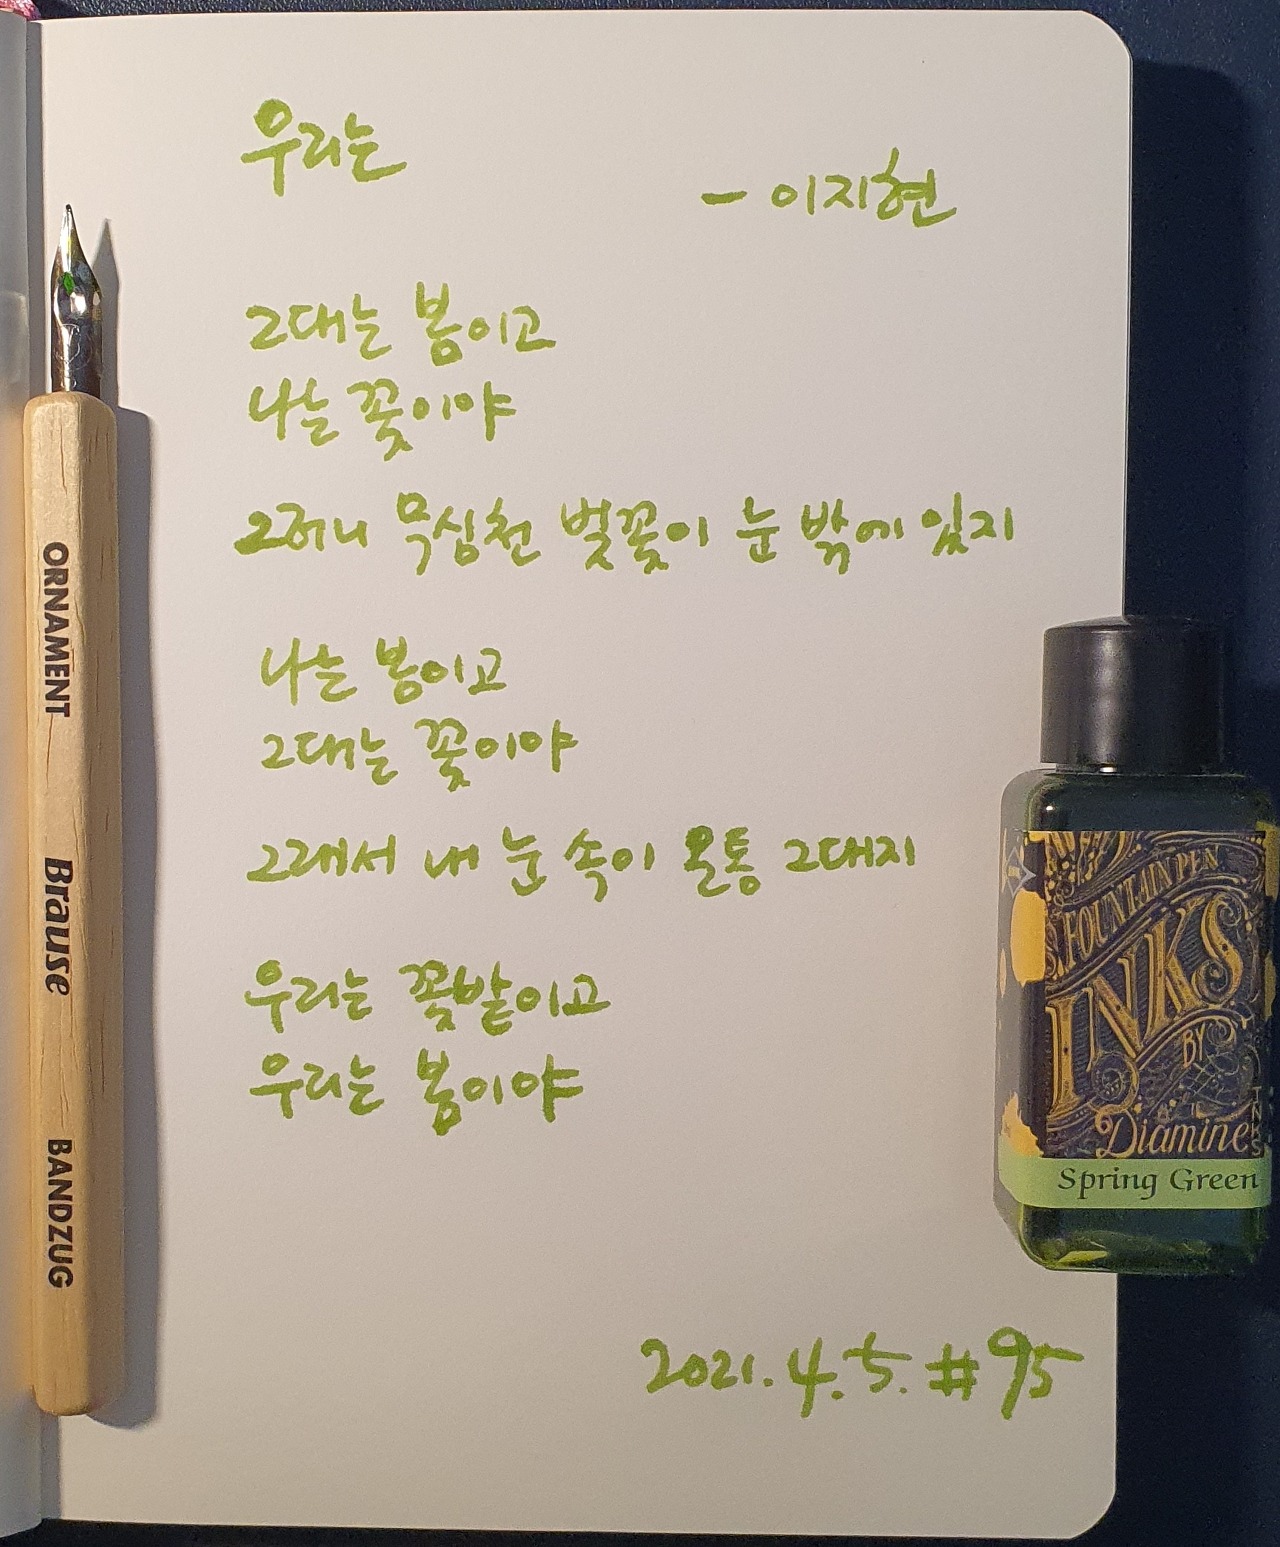 우리는
- 이지현
그대는 봄이고
나는 꽃이야
그러니 무심천 벚꽃이 눈 밖에 있지
나는 봄이고
그대는 꽃이야
그래서 내 눈 속이 온통 그대지
우리는 꽃밭이고
우리는 봄이야
2021. 4. 5. #95
ORNAMENT Brause BANDZUG
FOUNTAIN PEN
INKS
BY
Diamine
INKS
Spring Green